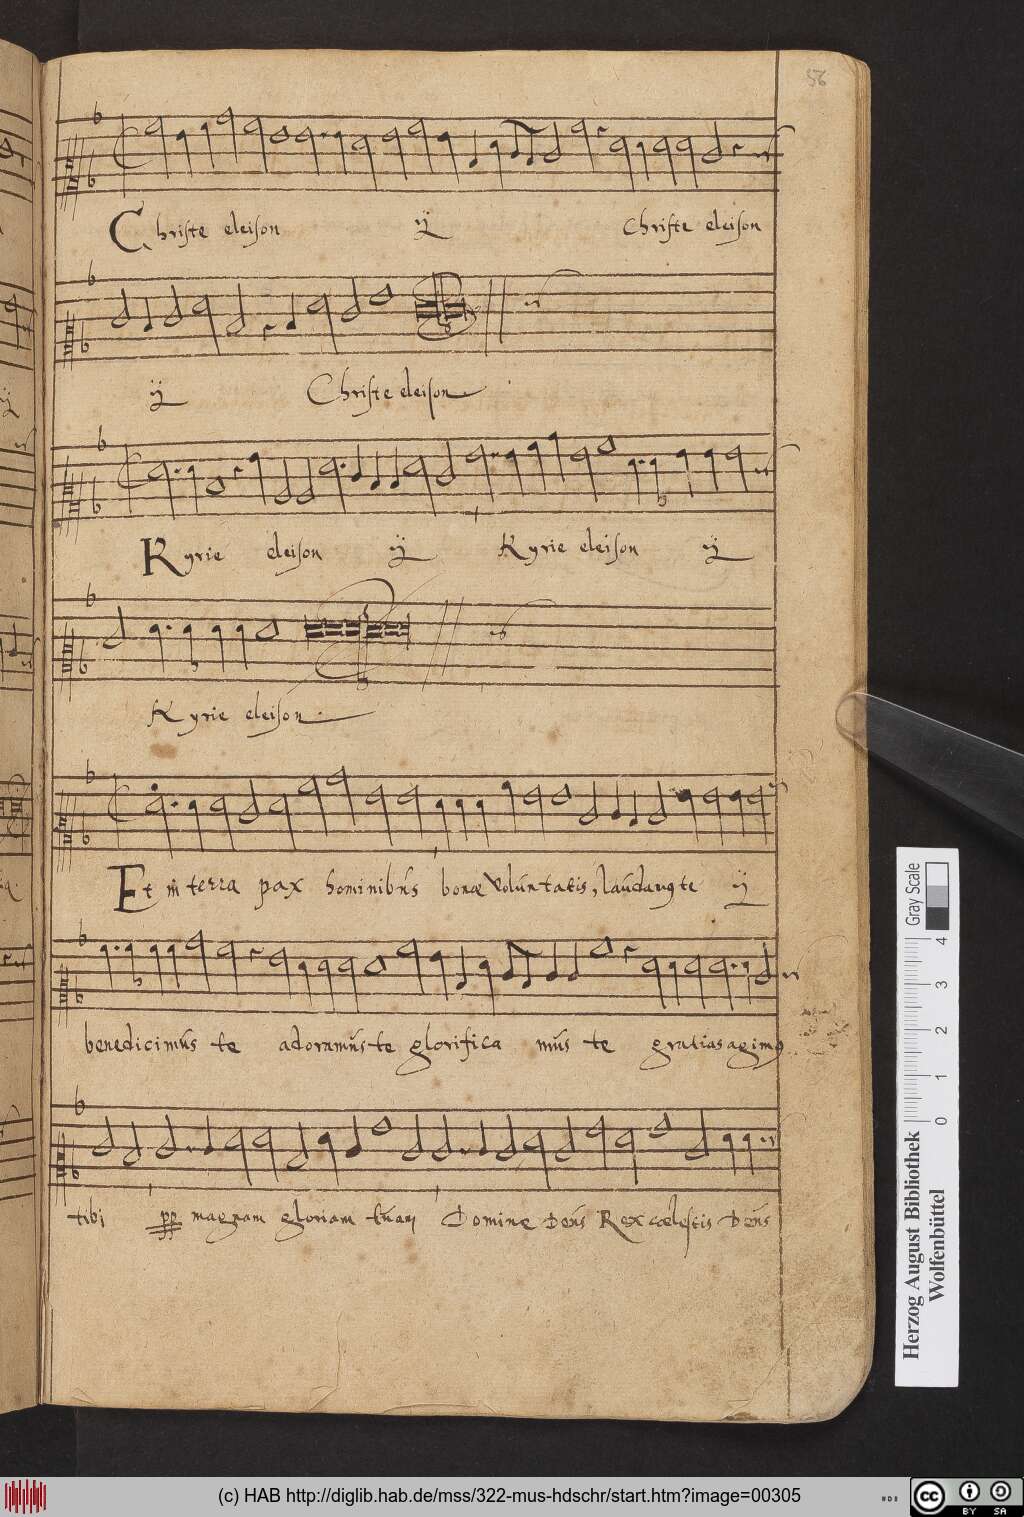 56
Christe eleison ij Christe eleison
ij Christe eleison
Kyrie eleison ij Kyrie eleison ij
Kyrie eleison
Et in terra pax hominibus bonae voluntatis, laudamus te ij
benedicimus te adoramus te glorifica mus te gratias agimus
tibi magnam gloriam tuam Domine Deus Rex coelestis Deus
Gray Scale
0 1 2 3 4
Herzog August Bibliothek
Wolfenbüttel
(c) HAB http://diglib.hab.de/mss/322-mus-hdschr/start.htm?image=00305
cc BY SA